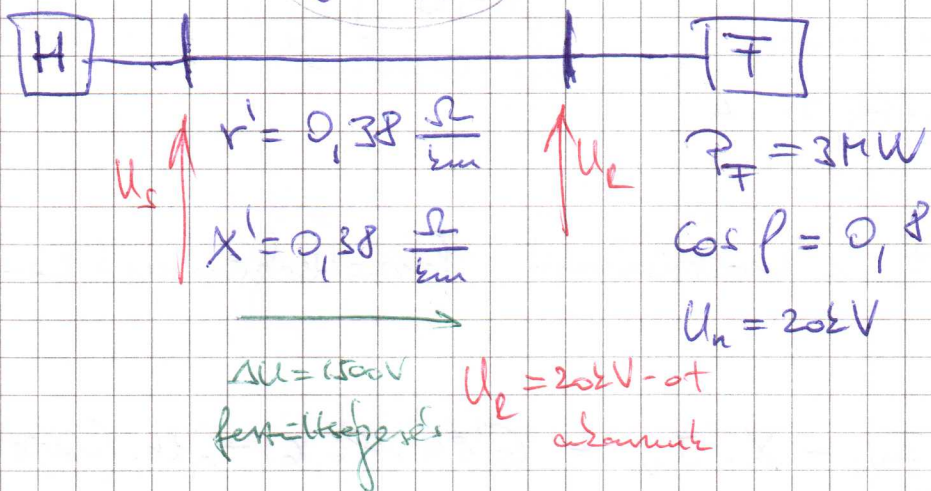 H
F
r' = 0,38 Ω/km
X' = 0,38 Ω/km
U_s
U_R
P_F = 3MW
cos φ = 0,8
U_n = 20kV
ΔU = 1500V
feszültségesés
U_R = 20kV-ot
akarunk